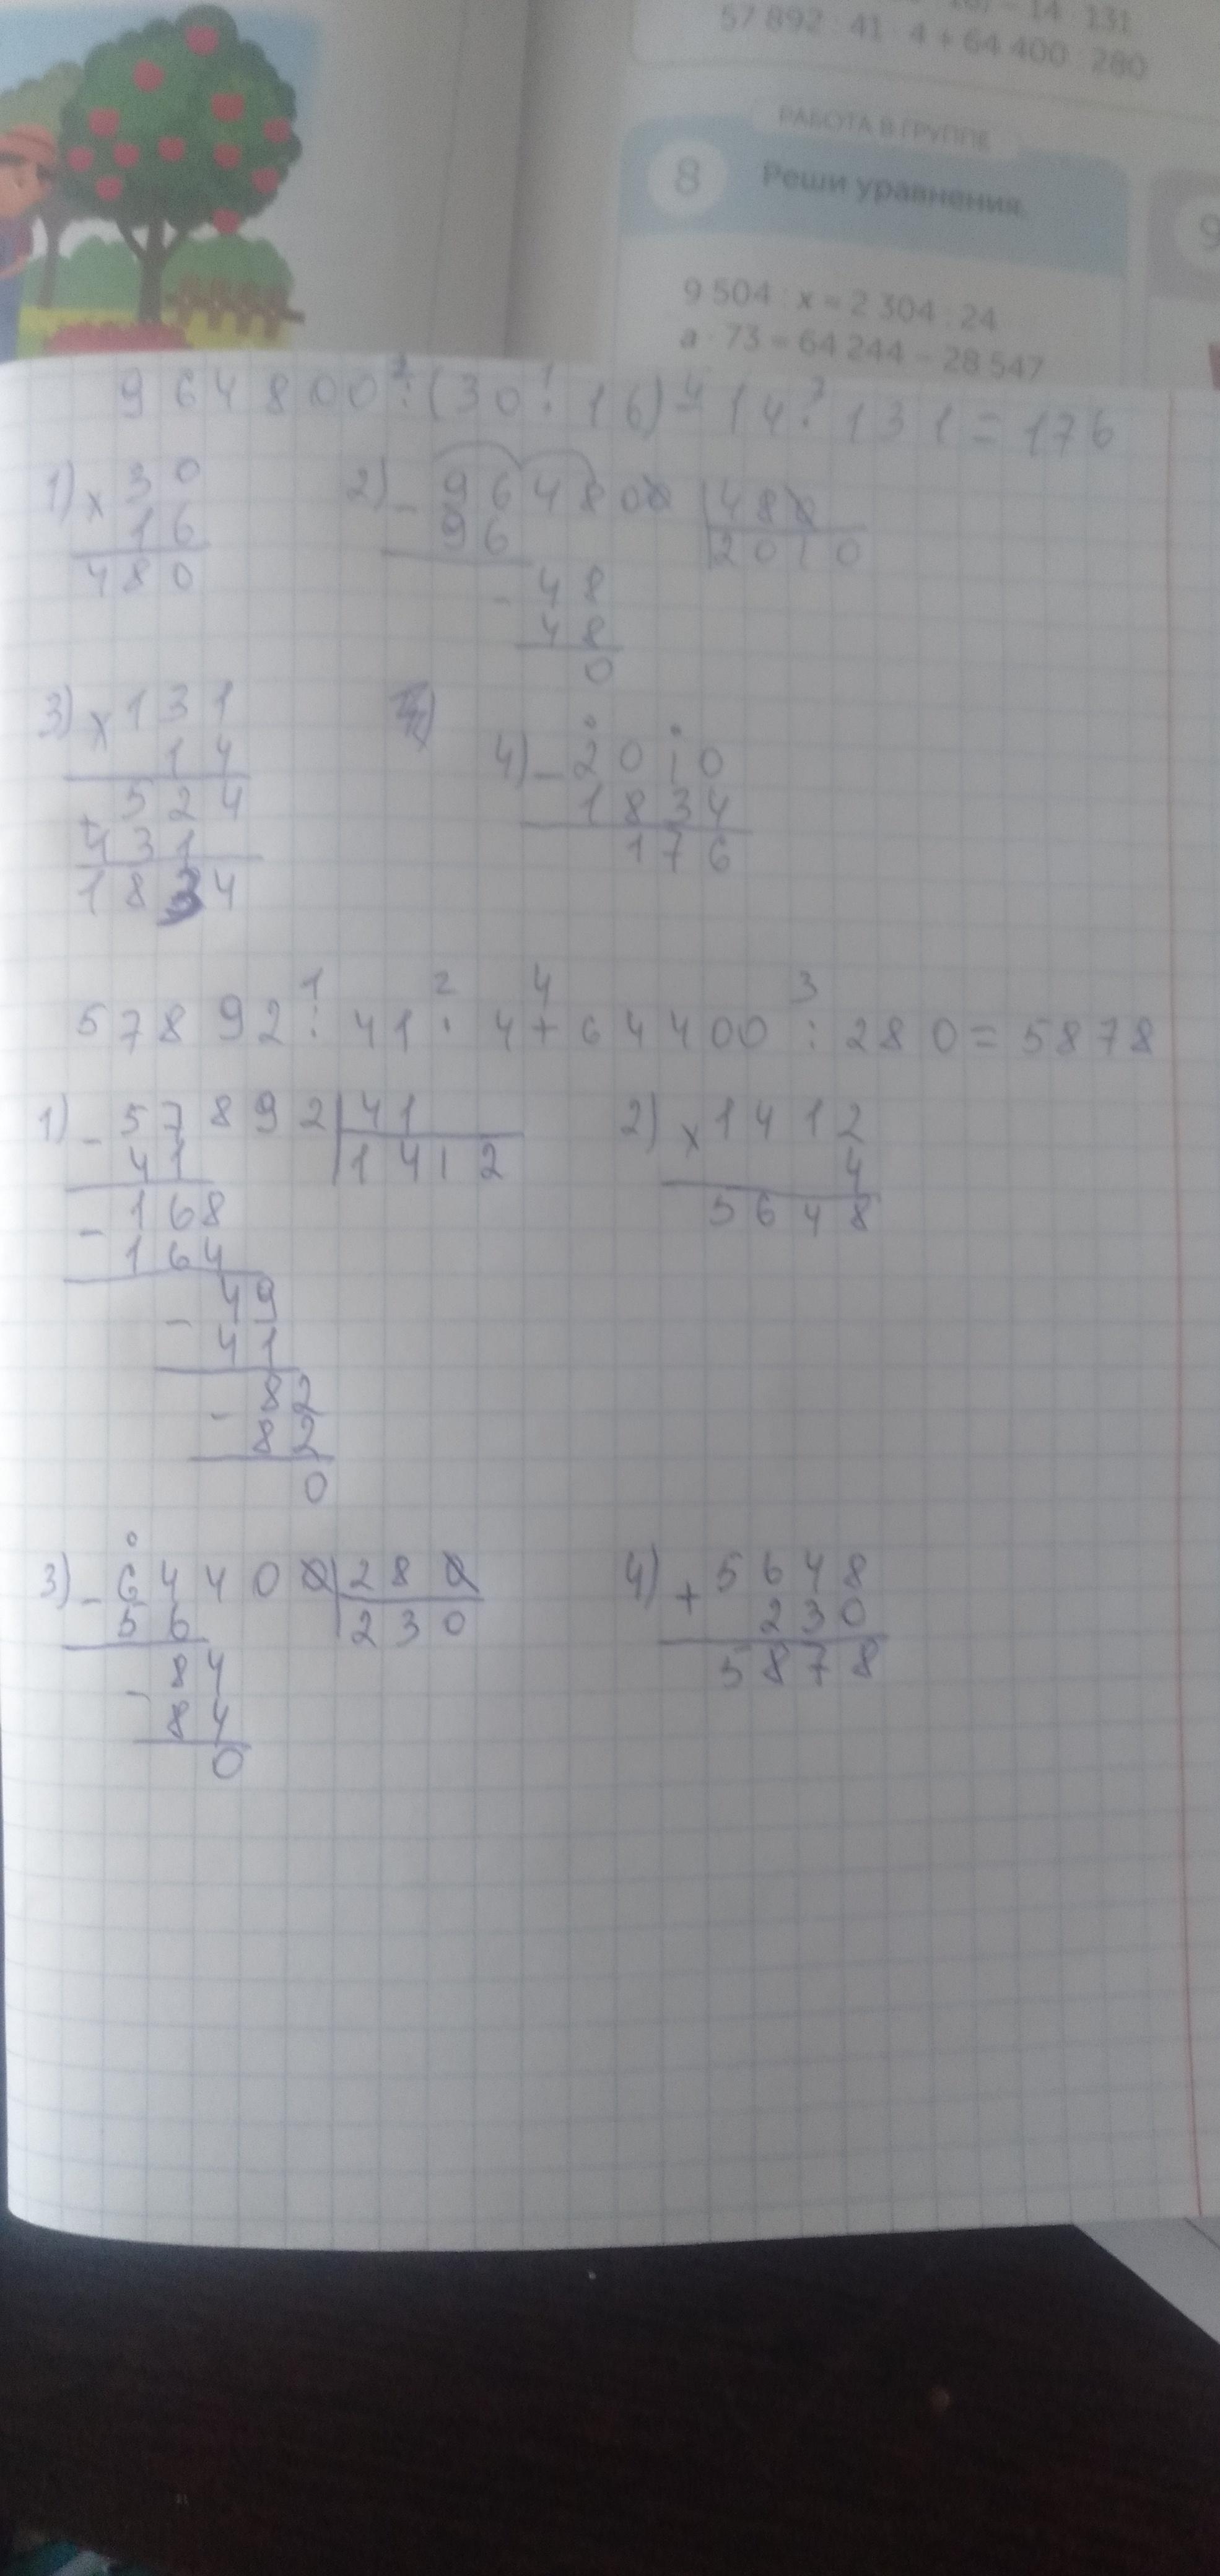 – 14 · 131
57 892 : 41 · 4 + 64 400 : 280
РАБОТА В ГРУППЕ
8 Реши уравнения.
9
9 504 : x = 2 304 : 24
a · 73 = 64 244 – 28 547
2 1 4 3
964800 : (30 · 16) – 14 · 131 = 176
1) × 30
16
480
2) – 964800 | 480
96 | 2010
– 48
48
0
3) × 131
14
+ 524
131
1834
4) – 2010
1834
176
1 2 4 3
57892 : 41 · 4 + 64400 : 280 = 5878
1) – 57892 | 41
41 | 1412
– 168
164
– 49
41
– 82
82
0
2) × 1412
4
5648
3) – 64400 | 280
56 | 230
– 84
84
0
4) + 5648
230
5878